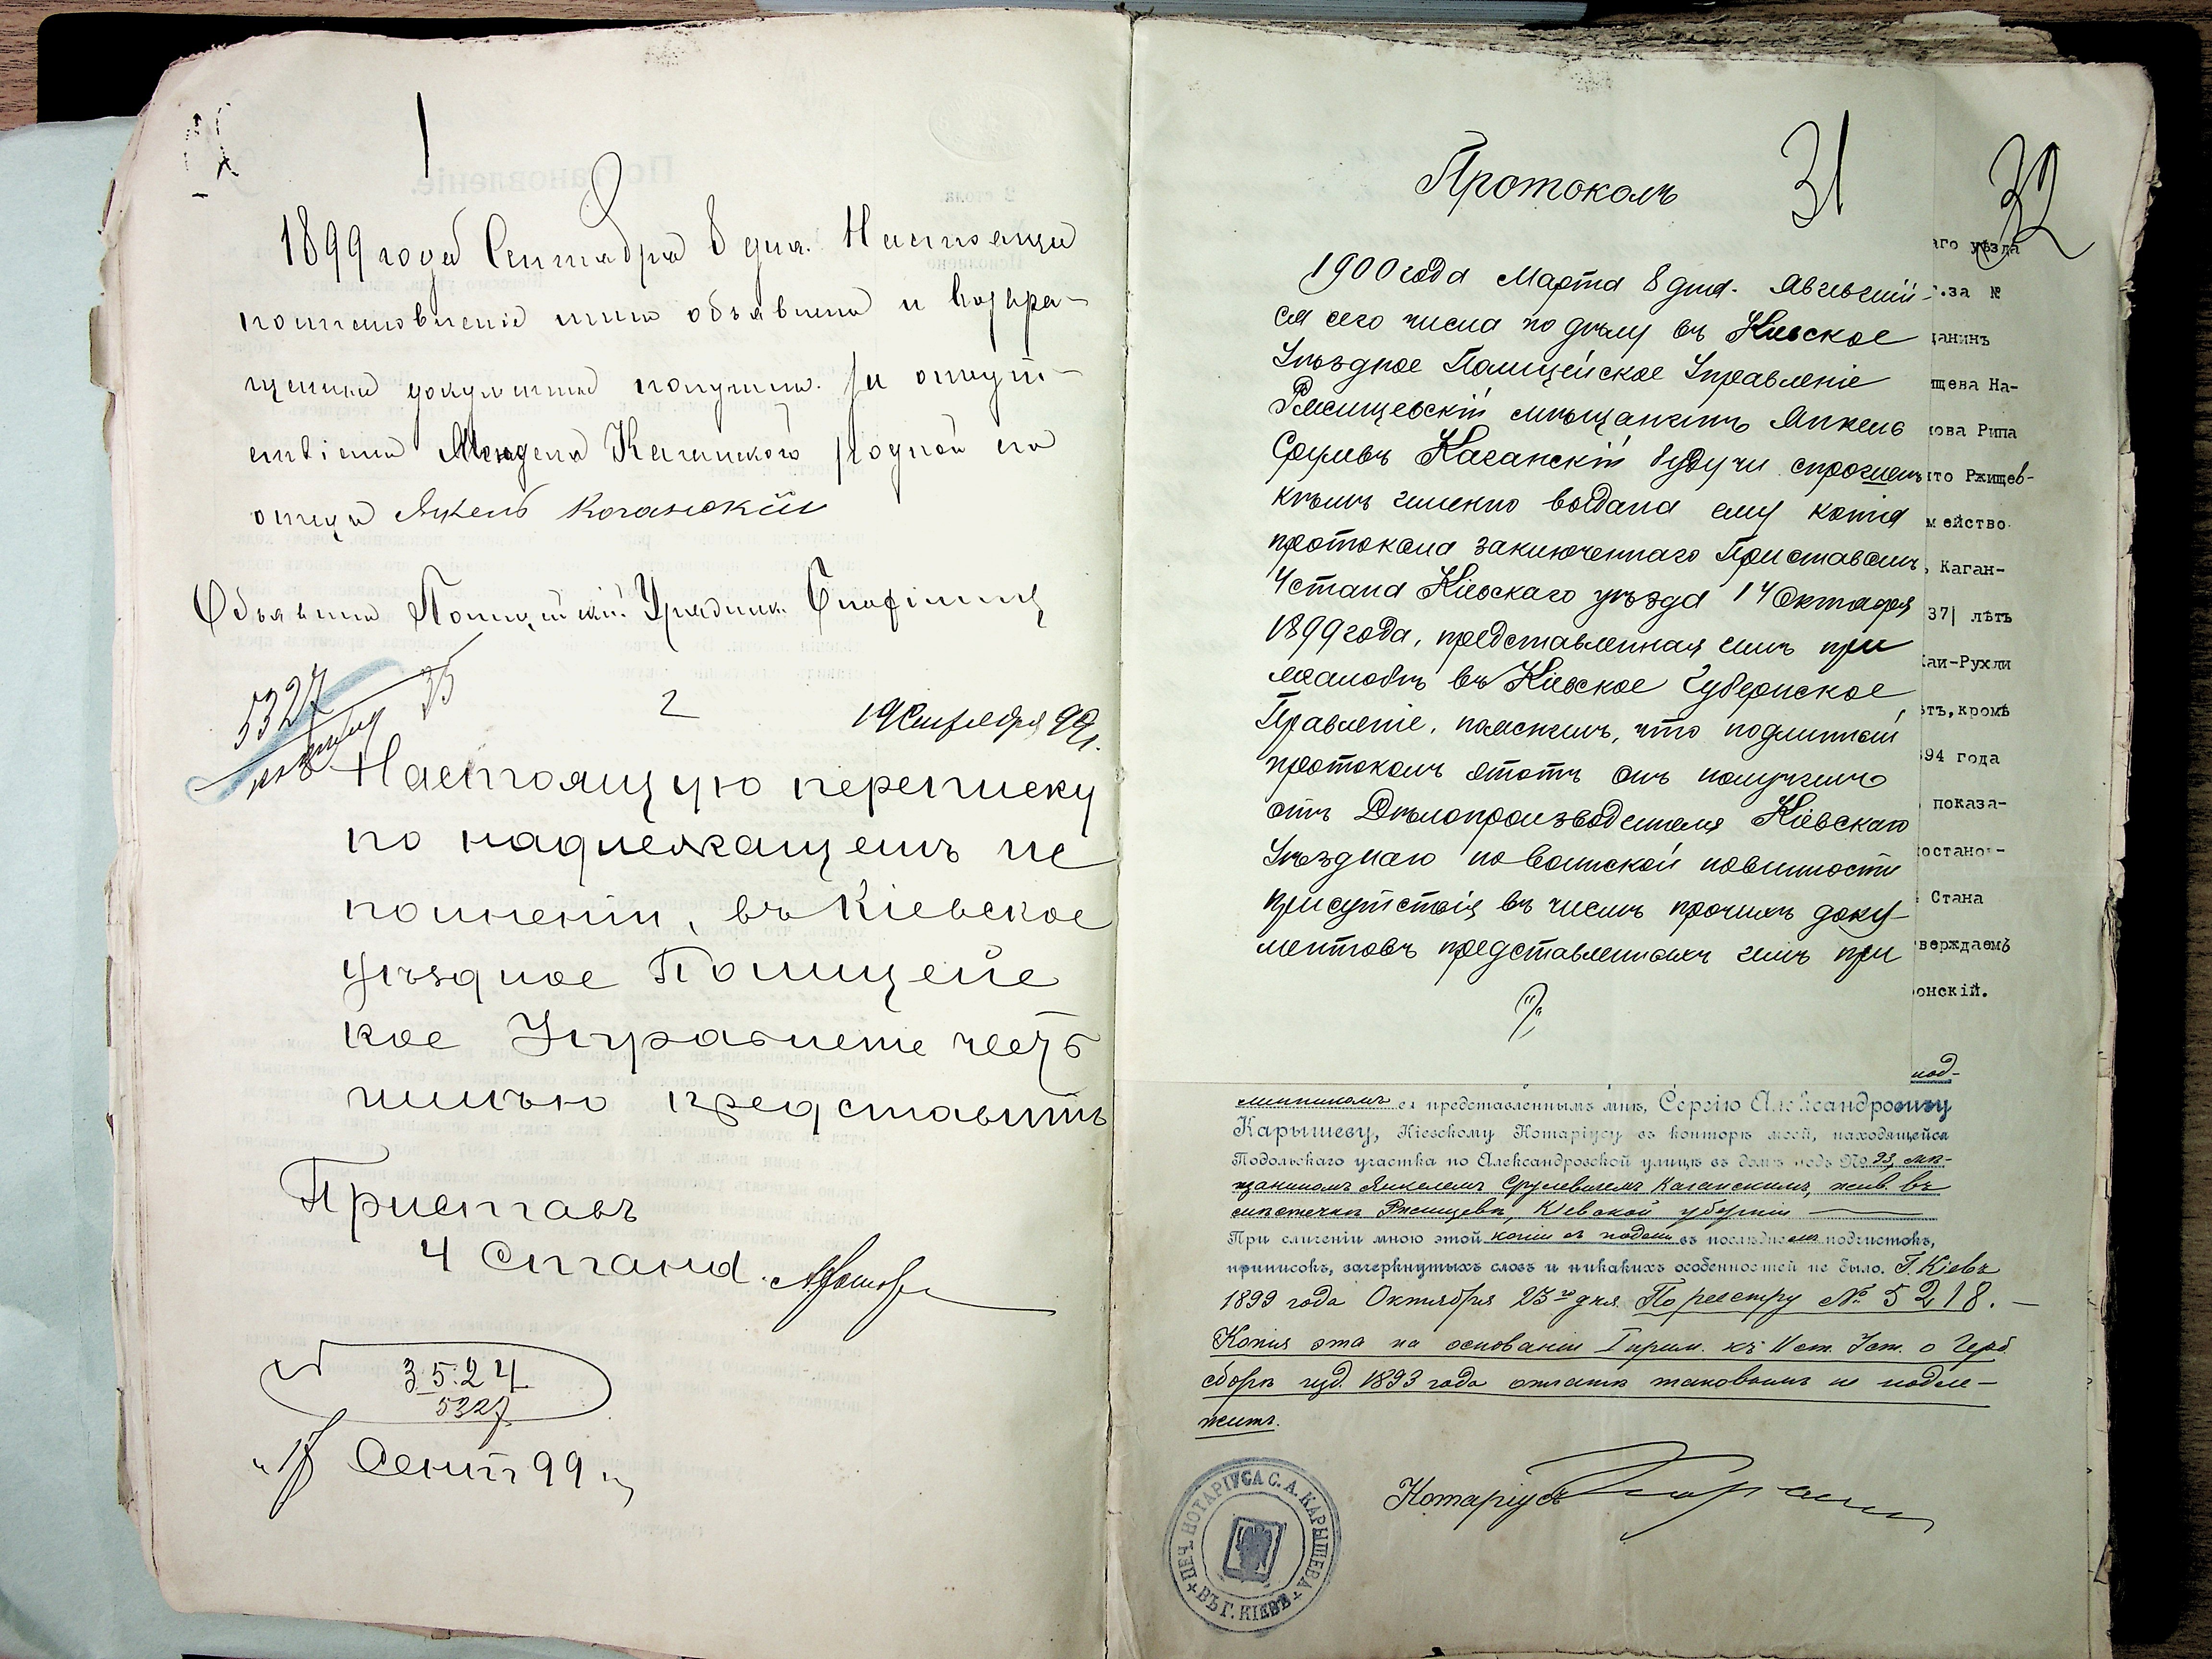 1
1899 года Сентября 8 дня. Настояще
постановленіе мнѣ объявлено и возвра-
щенные документы получилъ. За отсут-
ствіемъ Менделя Каганского родной его
отецъ Янкель Каганскій
Объявилъ Полицейскій Урядник
5327
35
2
19 Сентября 99 г.
Настоящую переписку
по надлежащемъ ис
полненіи, въ Кіевское
уѣздное Полицейс
кое Управленіе честь
имѣю представить
Приставъ
4 Стана
№ 3524
5327
"17 Сент 99 г.
Протоколъ
31
32
1900 года Марта 8 дня. Явившій-
ся сего числа по дѣлу въ Кіевское
Уѣздное Полицейское Управленіе
Ржищевскій мѣщанинъ Янкель
Срулевъ Каганскій будучи спрошенъ
кѣмъ именно выдана ему копія
протокола заключеннаго Приставомъ
4 стана Кіевскаго уѣзда 14 Октября
1899 года, представленная имъ при
жалобѣ въ Кіевское Губернское
Правленіе, пояснилъ, что подлинный
протоколъ этотъ онъ получилъ
отъ Дѣлопроизводителя Кіевскаго
Уѣзднаго по воинской повинности
присутствія въ числѣ прочихъ доку-
ментовъ представленныхъ имъ при
аго уѣзда
г.за №
данинъ
ищева На-
кова Рипа
что Ржищев-
мейство
, Каган-
37| лѣтъ
Хаи-Рухли
ѣтъ,кромѣ
894 года
показа-
постанов-
Стана
тверждаемъ
онскій.
под-
линникомъ ея представленнымъ мнѣ, Сергѣю Александровичу
Карышеву, Кіевскому Нотаріусу въ конторѣ моей, находящейся
Подольскаго участка по Александровской улицѣ въ домѣ подъ № 93, мѣ-
щаниномъ Янкелемъ Срулевичемъ Каганскимъ, жив. въ
мѣстечкѣ Ржищевѣ, Кіевской губерніи
При сличеніи мною этой копіи съ подлин. въ послѣднемъ подчистокъ,
приписокъ, зачеркнутыхъ словъ и никакихъ особенностей не было. Г. Кіевъ
1899 года Октября 23го дня. По реестру № 5218.
Копія эта на основаніи I прим. къ 11 ст. Уст. о Герб.
сборѣ изд. 1893 года оплатѣ таковымъ не подле-
житъ.
Нотаріусъ
ПЕЧ. НОТАРІУСА С. А. КАРЫШЕВА
ВЪ Г. КІЕВѢ